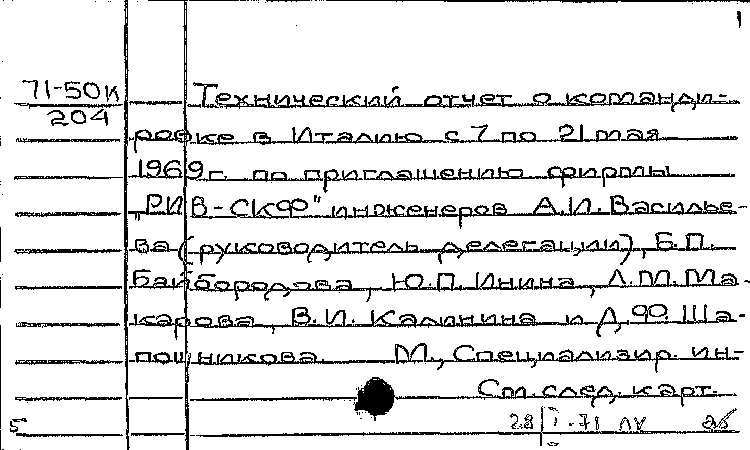 1
71-50к Технический отчет о команди-
204
ровке в Италию с 7 по 21 мая
1969г. по приглашению фирмы
„РИВ-СКФ" инженеров А.И. Василье-
ва (руководитель делегации), Б.П.
Байбородова, Ю.П. Инина, Л.М. Ма-
карова, В.И. Калинина и Д.Ф. Ша-
пошникова. М., Специализир. ин-
См. след. карт.
28 71
5